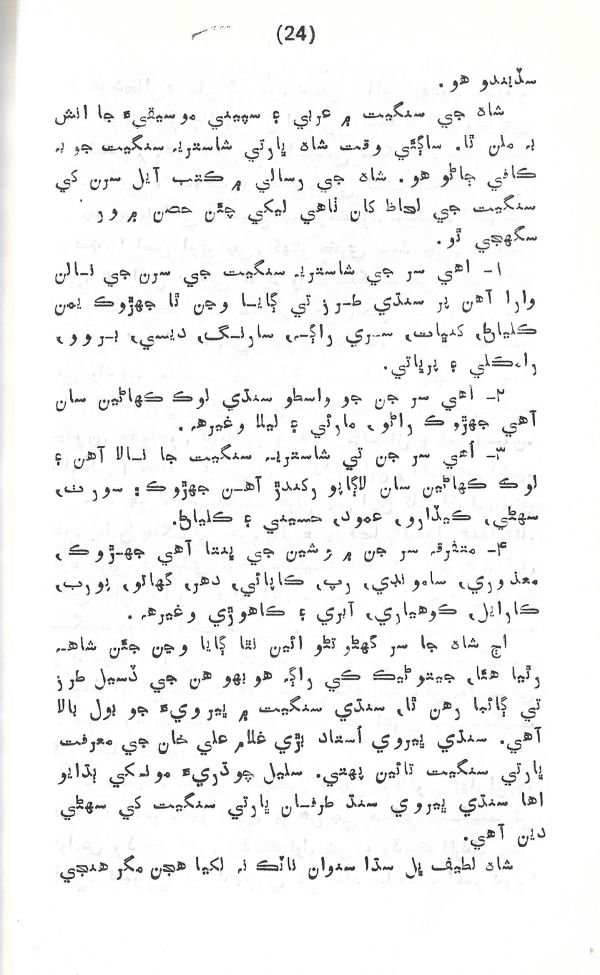 (24)
سڏيندو هو.
شاهه جي سنگيت ۾ عربي ۽ سپيني موسيقيءَ جا انش
بہ ملن ٿا. ساڳئي وقت شاهه ڀارتي شاستريہ سنگيت جو بہ
ڪافي ڄاڻو هو. شاهه جي رسالي ۾ ڪتب آيل سرن کي
سنگيت جي لحاظ کان ٺاهي ليکي چئن حصن ۾ ور
سگهجي ٿو.
۱- اهي سر جي شاستريہ سنگيت جي سرن جي نالن
وارا آهن پر سنڌي طرز تي ڳايا وڃن ٿا جهڙوڪ يمن
ڪلياڻ، کنڀات، سري راڳہ، سارنگ، ديسي، بروو،
رامڪلي ۽ پرڀاتي.
۲- اُهي سر جن جو واسطو سنڌي لوڪ ڪهاڻين سان
آهي جهڙوڪ راڻو، مارئي ۽ ليلا وغيرهہ.
۳- اُهي سر جن تي شاستريہ سنگيت جا نالا آهن ۽
لوڪ ڪهاڻين سان لاڳاپو رکندڙ آهن جهڙوڪ: سورٺ،
سهڻي، ڪيڏارو، عمود، حسيني ۽ ڪلياڻ.
۴- متفرقہ سر جن ۾ رشين جي ڀنتا آهي جهڙوڪ،
معذوري، سامونڊي، رپ، ڪاپائتي، دهر، گهاتو، پورب،
ڪارايل، ڪوهياري، آبري ۽ ڪاهوڙي وغيرهہ.
اڄ شاهه جا سر گهڻو تڻو ائين نٿا ڳايا وڃن جئن شاهہ
رٿيا هئا، جيتوڻيڪ کي راڳہ هو بهو هن جي ڏسيل طرز
تي ڳائبا رهن ٿا، سنڌي سنگيت ۾ ڀيرويءَ جو ٻول بالا
آهي. سنڌي ڀيروي اُستاد بڙي غلام علي خان جي معرفت
ڀارتي سنگيت تائين پهتي. سليل چوڌريءَ مونکي ٻڌايو
اها سنڌي ڀيروي سنڌ طرفان ڀارتي سنگيت کي سهڻي
دين آهي.
شاهه لطيف ڀل سڌا سنوان ناٽڪ نہ لکيا هجن مگر هنجي